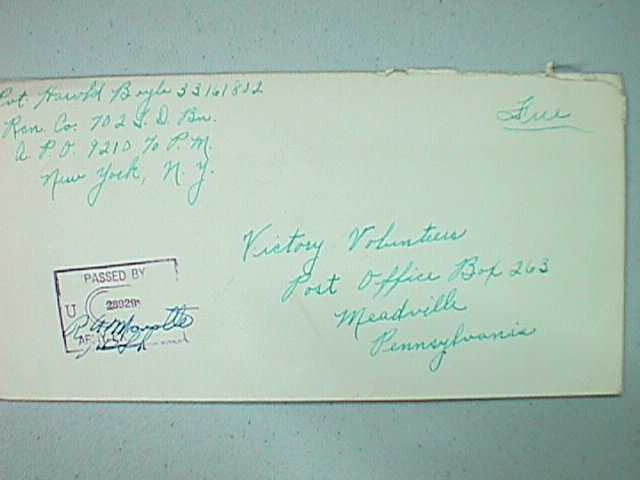 Pvt. Harold Boyle 33161812
Rcn. Co. 702 T. D. Bn.
A. P. O. 9210 % P. M.
New York, N. Y.
Free
Victory Volunteers
Post Office Box 263
Meadville
Pennsylvania
PASSED BY
U